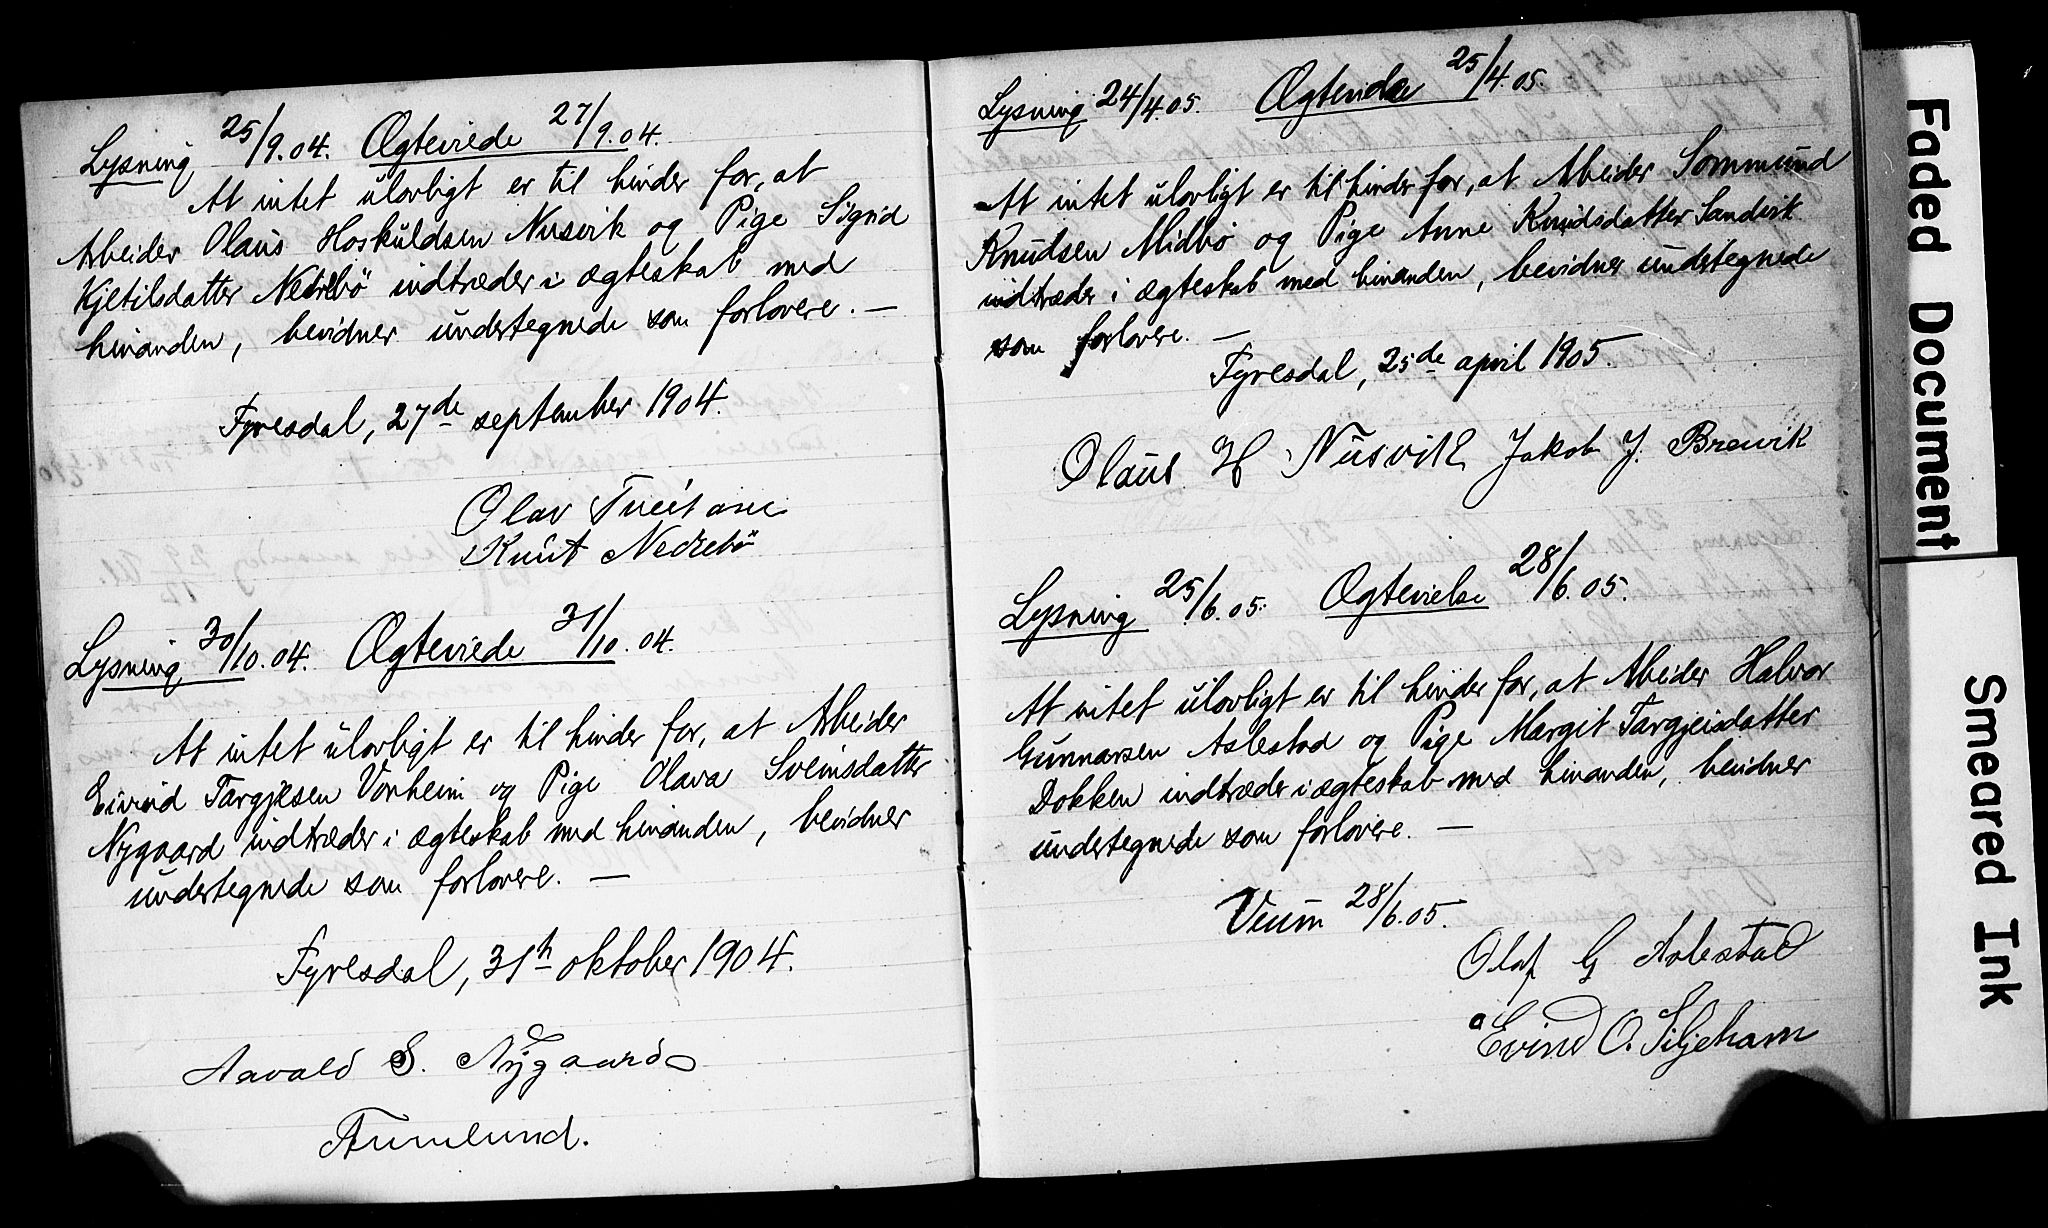 Lysning 25/9.04. Ægteviede 27/9.04.
At intet ulovligt er til hinder for, at
Arbeider Olaus Hoskuldsen Nusvik og Pige Sigrid
Kjetilsdatter Nedrebö indtræder i ægteskab med
hinanden, bevidner undertegnede som forlovere. —
Fyresdal, 27de september 1904.
Olav Tveitane
Knut Nedrebö
Lysning 30/10.04. Ægteviede 31/10.04.
At intet ulovligt er til hinder for, at Abeider
Eivind Targjesen Vonheim og Pige Olava Sveinsdatter
Nygaard indtræder i ægteskab med hinanden, bevidner
undertegnede som forlovere. —
Fyresdal, 31th oktober 1904.
Aavald S. Nygaard
Lysning 24/4.05. Ægteviede 25/4.05.
At intet ulovligt er til hinder for, at Abeider Sommund
Knudsen Midbø og Pige Anne Knudsdatter Sandvik
indtræder i ægteskab med hinanden, bevidner undertegnede
som forlovere. —
Fyresdal, 25de april 1905.
Olaus H Nusvik Jakob J. Brevik
Lysning 25/6.05. Ægtevielse 28/6.05.
At intet ulovligt er til hinder for, at Abeider Halvor
Gunnarsen Aslestad og Pige Margit Targjeisdatter
Dokken indtræder i ægteskab med hinanden, bevidner
undertegnede som forlovere. —
Veum 28/6.05.
Olaf G Aslestad
Evind O. Siljeham
Faded Document
Smeared Ink